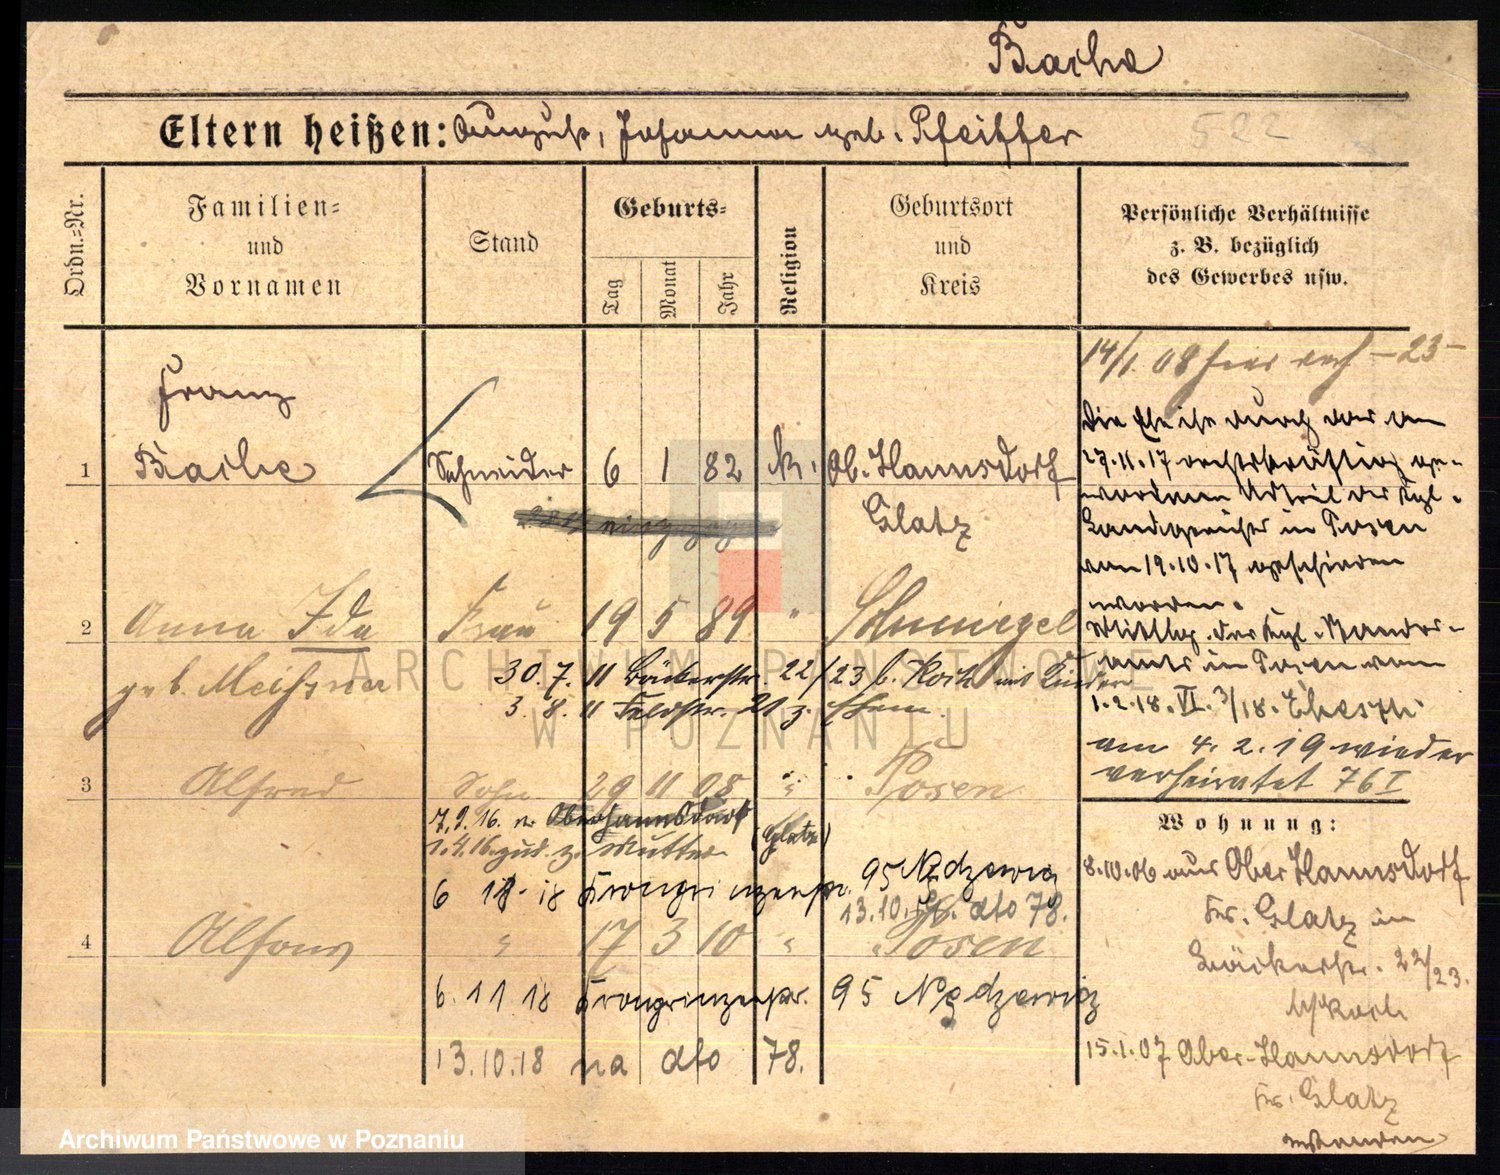 Bache
Eltern heißen: August, Johanna geb. Pfeiffer
522
Ordn.-Nr.
Familien-
und
Vornamen
Stand
Geburts-
Tag
Monat
Jahr
Religion
Geburtsort
und
Kreis
Persönliche Verhältnisse
z. B. bezüglich
des Gewerbes usw.
14/1. 08 hier auf -23-
Franz
1 Bache Schneider 6 1 82 k. Ob. Hannsdorf
Glatz
Die Ehe ist durch das am
27.11.17 rechtskräftig ge-
wordenen Urteil des Kgl.
Landgerichts in Posen
vom 19.10.17 geschieden
worden.
Mittlg. des Kgl. Standes-
amts in Posen vom
1.2.18. VI. 3/18.
am 4. 2. 19 wieder
verheiratet 76 I
2 Anna Ida Frau 19 5 89 " Schmiegel
geb. Meissner
30. 7. 11 Bäckerstr. 22/23 b. Koch mit Kindern
3. 8. 11 Feldstr. 21 z. Ehem.
3 Alfred Sohn 29 11 08 " Posen
7.9.16. n. Oberhannsdorf (Glatz)
1.4.16. zur. z. Mutter
6 18 Kronprinzenstr. 95 Nędzewicz
13.10. dto 78.
4 Alfons " 17 3 10 " Posen
6. 11 18 Kronprinzenstr. 95 Nędzewicz
13.10.18 na dto 78.
Wohnung:
8.10.06 aus Ober Hannsdorf
Kr. Glatz in
Bäckerstr. 22/23.
b/Koch
15.1.07 Ober-Hannsdorf
Kr. Glatz
ARCHIWUM PAŃSTWOWE
W POZNANIU
Archiwum Państwowe w Poznaniu